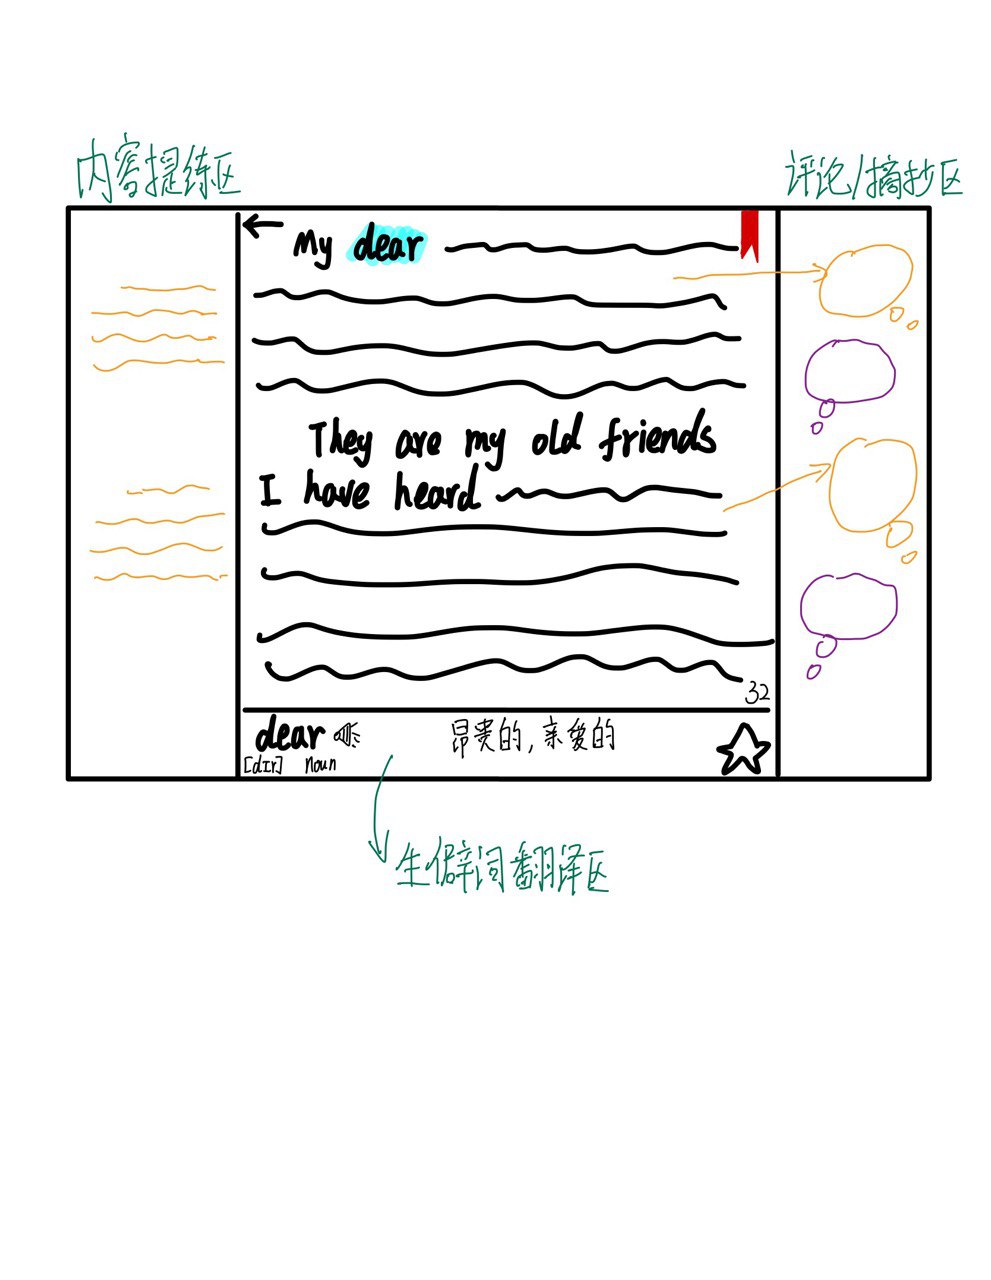 内容提练区
评论/摘抄区
My dear
They are my old friends
I have heard
32
dear
昂贵的,亲爱的
[dɪr] noun
生僻词翻译区